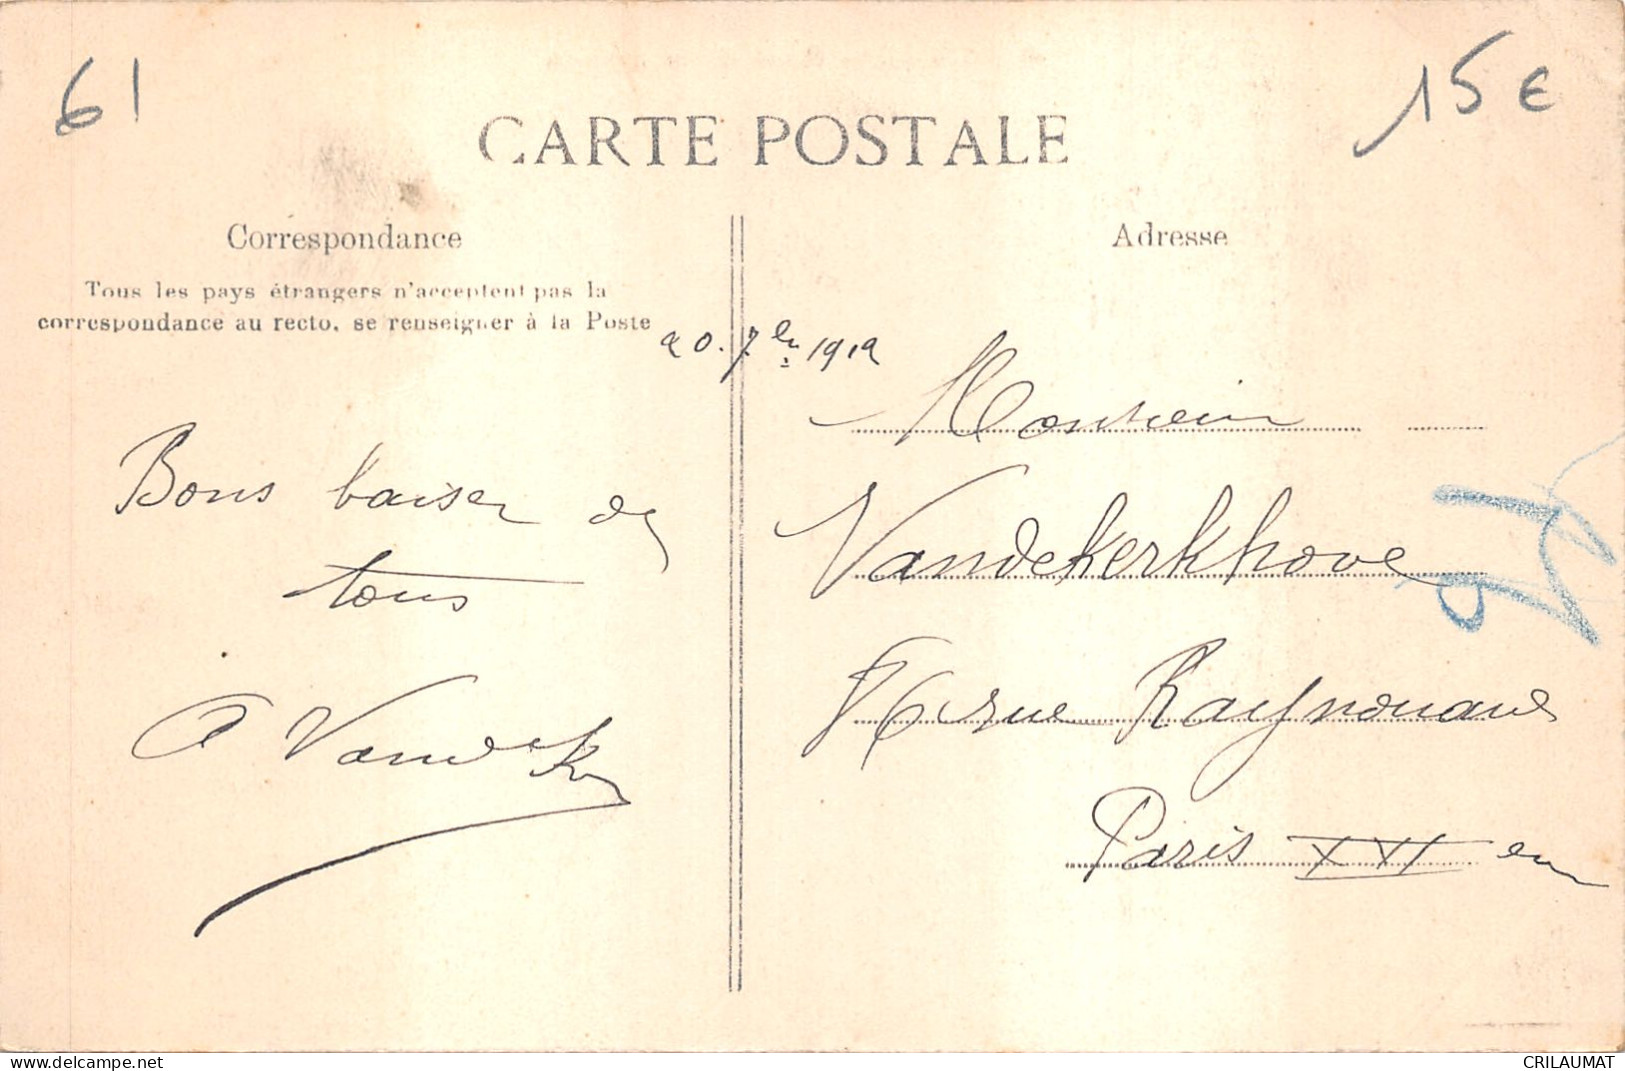 61
15 €
CARTE POSTALE
Correspondance
Adresse
Tous les pays étrangers n'acceptent pas la
correspondance au recto, se renseigner à la Poste
20. 7bre 1912
Bons baiser de
tous
Monsieur
Vandekerkhove
rue Raynouard
Paris XVI em
Delcampe.net
CRILAUMAT